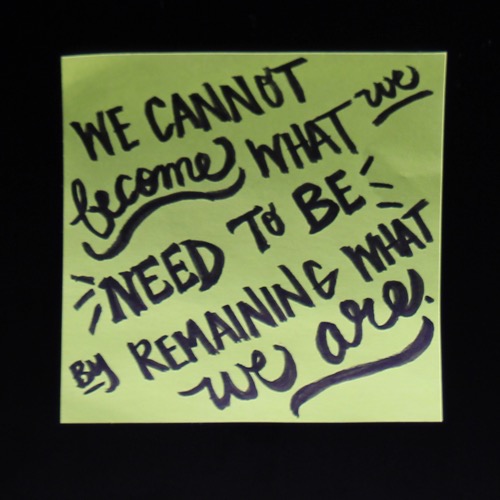 WE CANNOT
become WHAT we
NEED TO BE
BY REMAINING WHAT
we are.